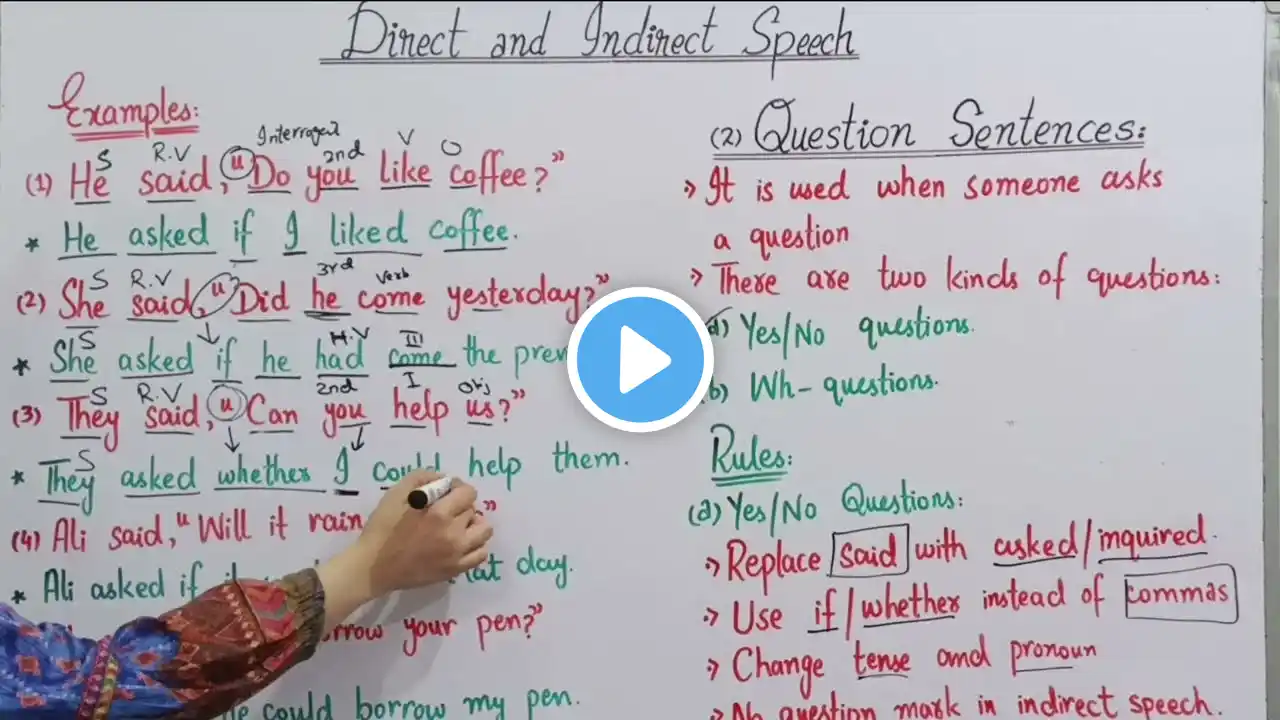 Direct and Indirect Speech
Examples:
Interrogat
S R.V 2nd V O
(1) He said, "Do you like coffee?"
* He asked if I liked coffee.
S R.V 3rd Verb
(2) She said, "Did he come yesterday?"
S H.V III
* She asked if he had come the prev
S R.V 2nd I Obj
(3) They said, "Can you help us?"
S
* They asked whether I could help them.
(4) Ali said, "Will it rain "
* Ali asked if it that day.
your pen?"
he could borrow my pen.
(2) Question Sentences:
It is used when someone asks
a question
There are two kinds of questions:
(a) Yes/No questions.
(b) Wh- questions.
Rules:
(a) Yes/No Questions:
Replace said with asked/inquired.
Use if/whether instead of commas
Change tense and pronoun
No question mark in indirect speech.